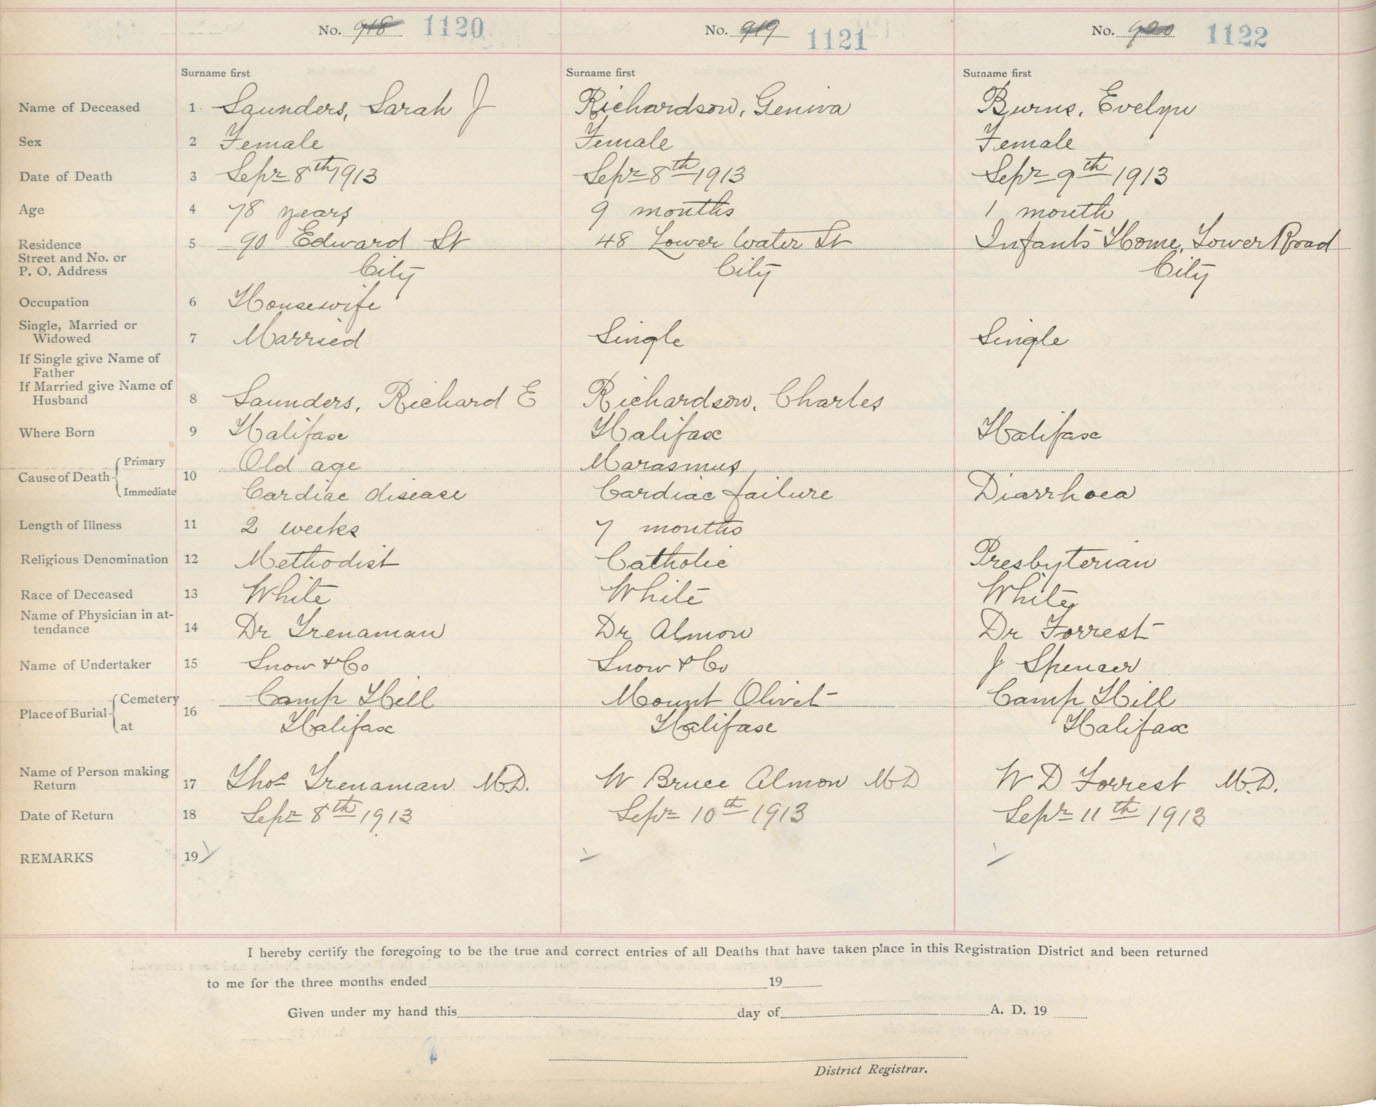 No. 918 1120 No. 919 1121 No. 920 1122
Surname first Surname first Surname first
Name of Deceased 1 Saunders, Sarah J Richardson, Geniva Burns, Evelyn
Sex 2 Female Female Female
Date of Death 3 Sepr 8th 1913 Sepr 8th 1913 Sepr 9th 1913
Age 4 78 years 9 months 1 month
Residence 5 90 Edward St 48 Lower Water St Infants Home, Lower Road
Street and No. or
P. O. Address City City City
Occupation 6 Housewife
Single, Married or
Widowed 7 Married Single Single
If Single give Name of
Father
If Married give Name of
Husband 8 Saunders, Richard E Richardson, Charles
Where Born 9 Halifax Halifax Halifax
Primary Old age Marasmus
Cause of Death 10
Immediate Cardiac disease Cardiac failure Diarrhoea
Length of Illness 11 2 weeks 7 months
Religious Denomination 12 Methodist Catholic Presbyterian
Race of Deceased 13 White White White
Name of Physician in at-
tendance 14 Dr Trenaman Dr Almon Dr Forrest
Name of Undertaker 15 Snow & Co Snow & Co J Spencer
Cemetery Camp Hill Mount Olivet Camp Hill
Place of Burial 16
at Halifax Halifax Halifax
Name of Person making
Return 17 Thos Trenaman M.D. W Bruce Almon MD W D Forrest M.D.
Date of Return 18 Sepr 8th 1913 Sepr 10th 1913 Sepr 11th 1913
REMARKS 19
I hereby certify the foregoing to be the true and correct entries of all Deaths that have taken place in this Registration District and been returned
to me for the three months ended 19
Given under my hand this day of A. D. 19
District Registrar.